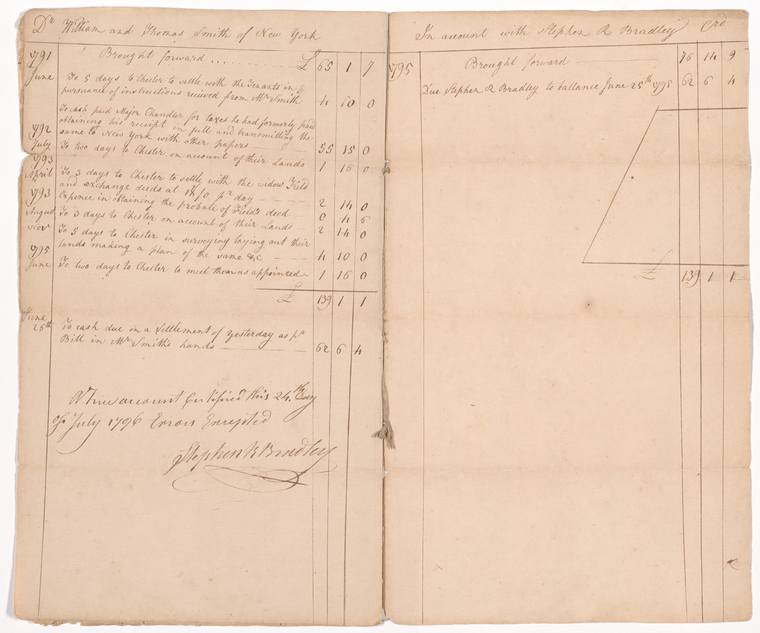 Dr William and Thomas Smith of New York
1791 Brought forward £ 65 1 7
June To 5 days to Chester to settle with the Tenants in
pursuance of instructions recieved from Mr Smith 4 10 0
To cash paid Major Chandler for taxes he had formerly paid
obtaining his receipt in full and transmitting the
1792 same to New York with other papers 55 15 0
July To two days to Chester on account of their Lands 1 16 0
1793
April To 3 days to Chester to settle with the widow Field
and exchange deeds at 18/0 pr day 2 14 0
1793 Expence in obtaining the probate of Field's deed 0 4 6
August To 3 days to Chester on account of their Lands 2 14 0
Novr To 5 days to Chester in surveying laying out their
lands making a plan of the same &c 4 10 0
1795
June To two days to Chester to meet them as appointed 1 16 0
£ 139 1 1
June
25th To cash due in a settlement of yesterday as pr
Bill in Mr Smith's hands 62 6 4
A true account Certified this 24th day
of July 1796 Errors Excepted
Stephen R Bradley
In account with Stephen R Bradley Cro
1795 Brought forward 76 14 9
Due Stephen R Bradley to ballance June 25th 1795 62 6 4
£ 139 1 1